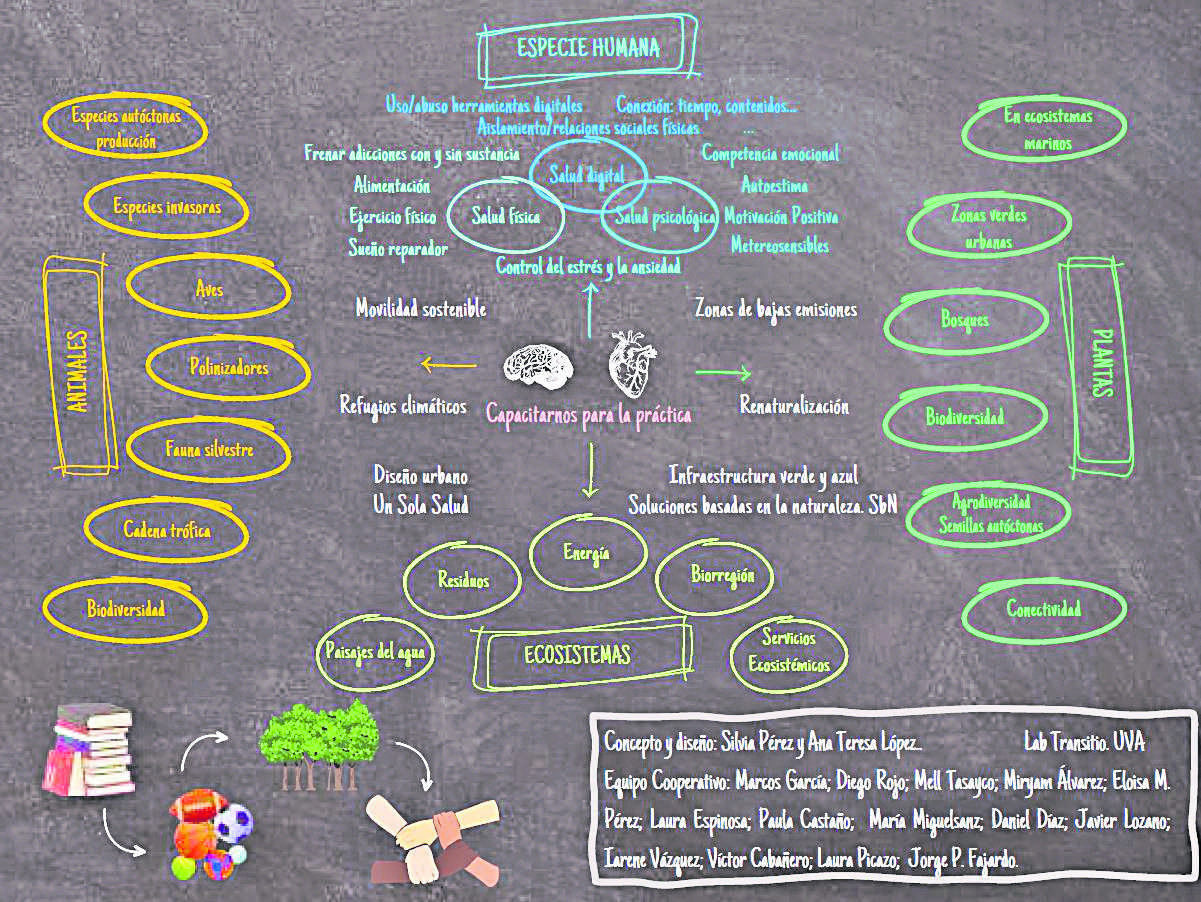 ESPECIE HUMANA
Uso/abuso herramientas digitales
Conexión: tiempo, contenidos...
Aislamiento/relaciones sociales físicas
...
Frenar adicciones con y sin sustancia
Alimentación
Ejercicio físico
Sueño reparador
Salud digital
Salud Física
Salud psicológica
Competencia emocional
Autoestima
Motivación Positiva
Metereosensibles
Control del estrés y la ansiedad
ANIMALES
Especies autóctonas
producción
Especies invasoras
Aves
Polinizadores
Fauna silvestre
Cadena trófica
Biodiversidad
Movilidad sostenible
Zonas de bajas emisiones
Refugios climáticos
Capacitarnos para la práctica
Renaturalización
Diseño urbano
Un Sola Salud
Infraestructura verde y azul
Soluciones basadas en la naturaleza. SbN
PLANTAS
En ecosistemas
marinos
Zonas verdes
urbanas
Bosques
Biodiversidad
Agrodiversidad
Semillas autóctonas
Conectividad
Energía
Residuos
Biorregión
Paisajes del agua
ECOSISTEMAS
Servicios
Ecosistémicos
Concepto y diseño: Silvia Pérez y Ana Teresa López.. Lab Transitio. UVA
Equipo Cooperativo: Marcos García; Diego Rojo; Mell Tasayco; Miryam Álvarez; Eloisa M.
Pérez; Laura Espinosa; Paula Castaño; María Miguelsanz; Daniel Díaz; Javier Lozano;
Iarene Vázquez; Víctor Cabañero; Laura Picazo; Jorge P. Fajardo.